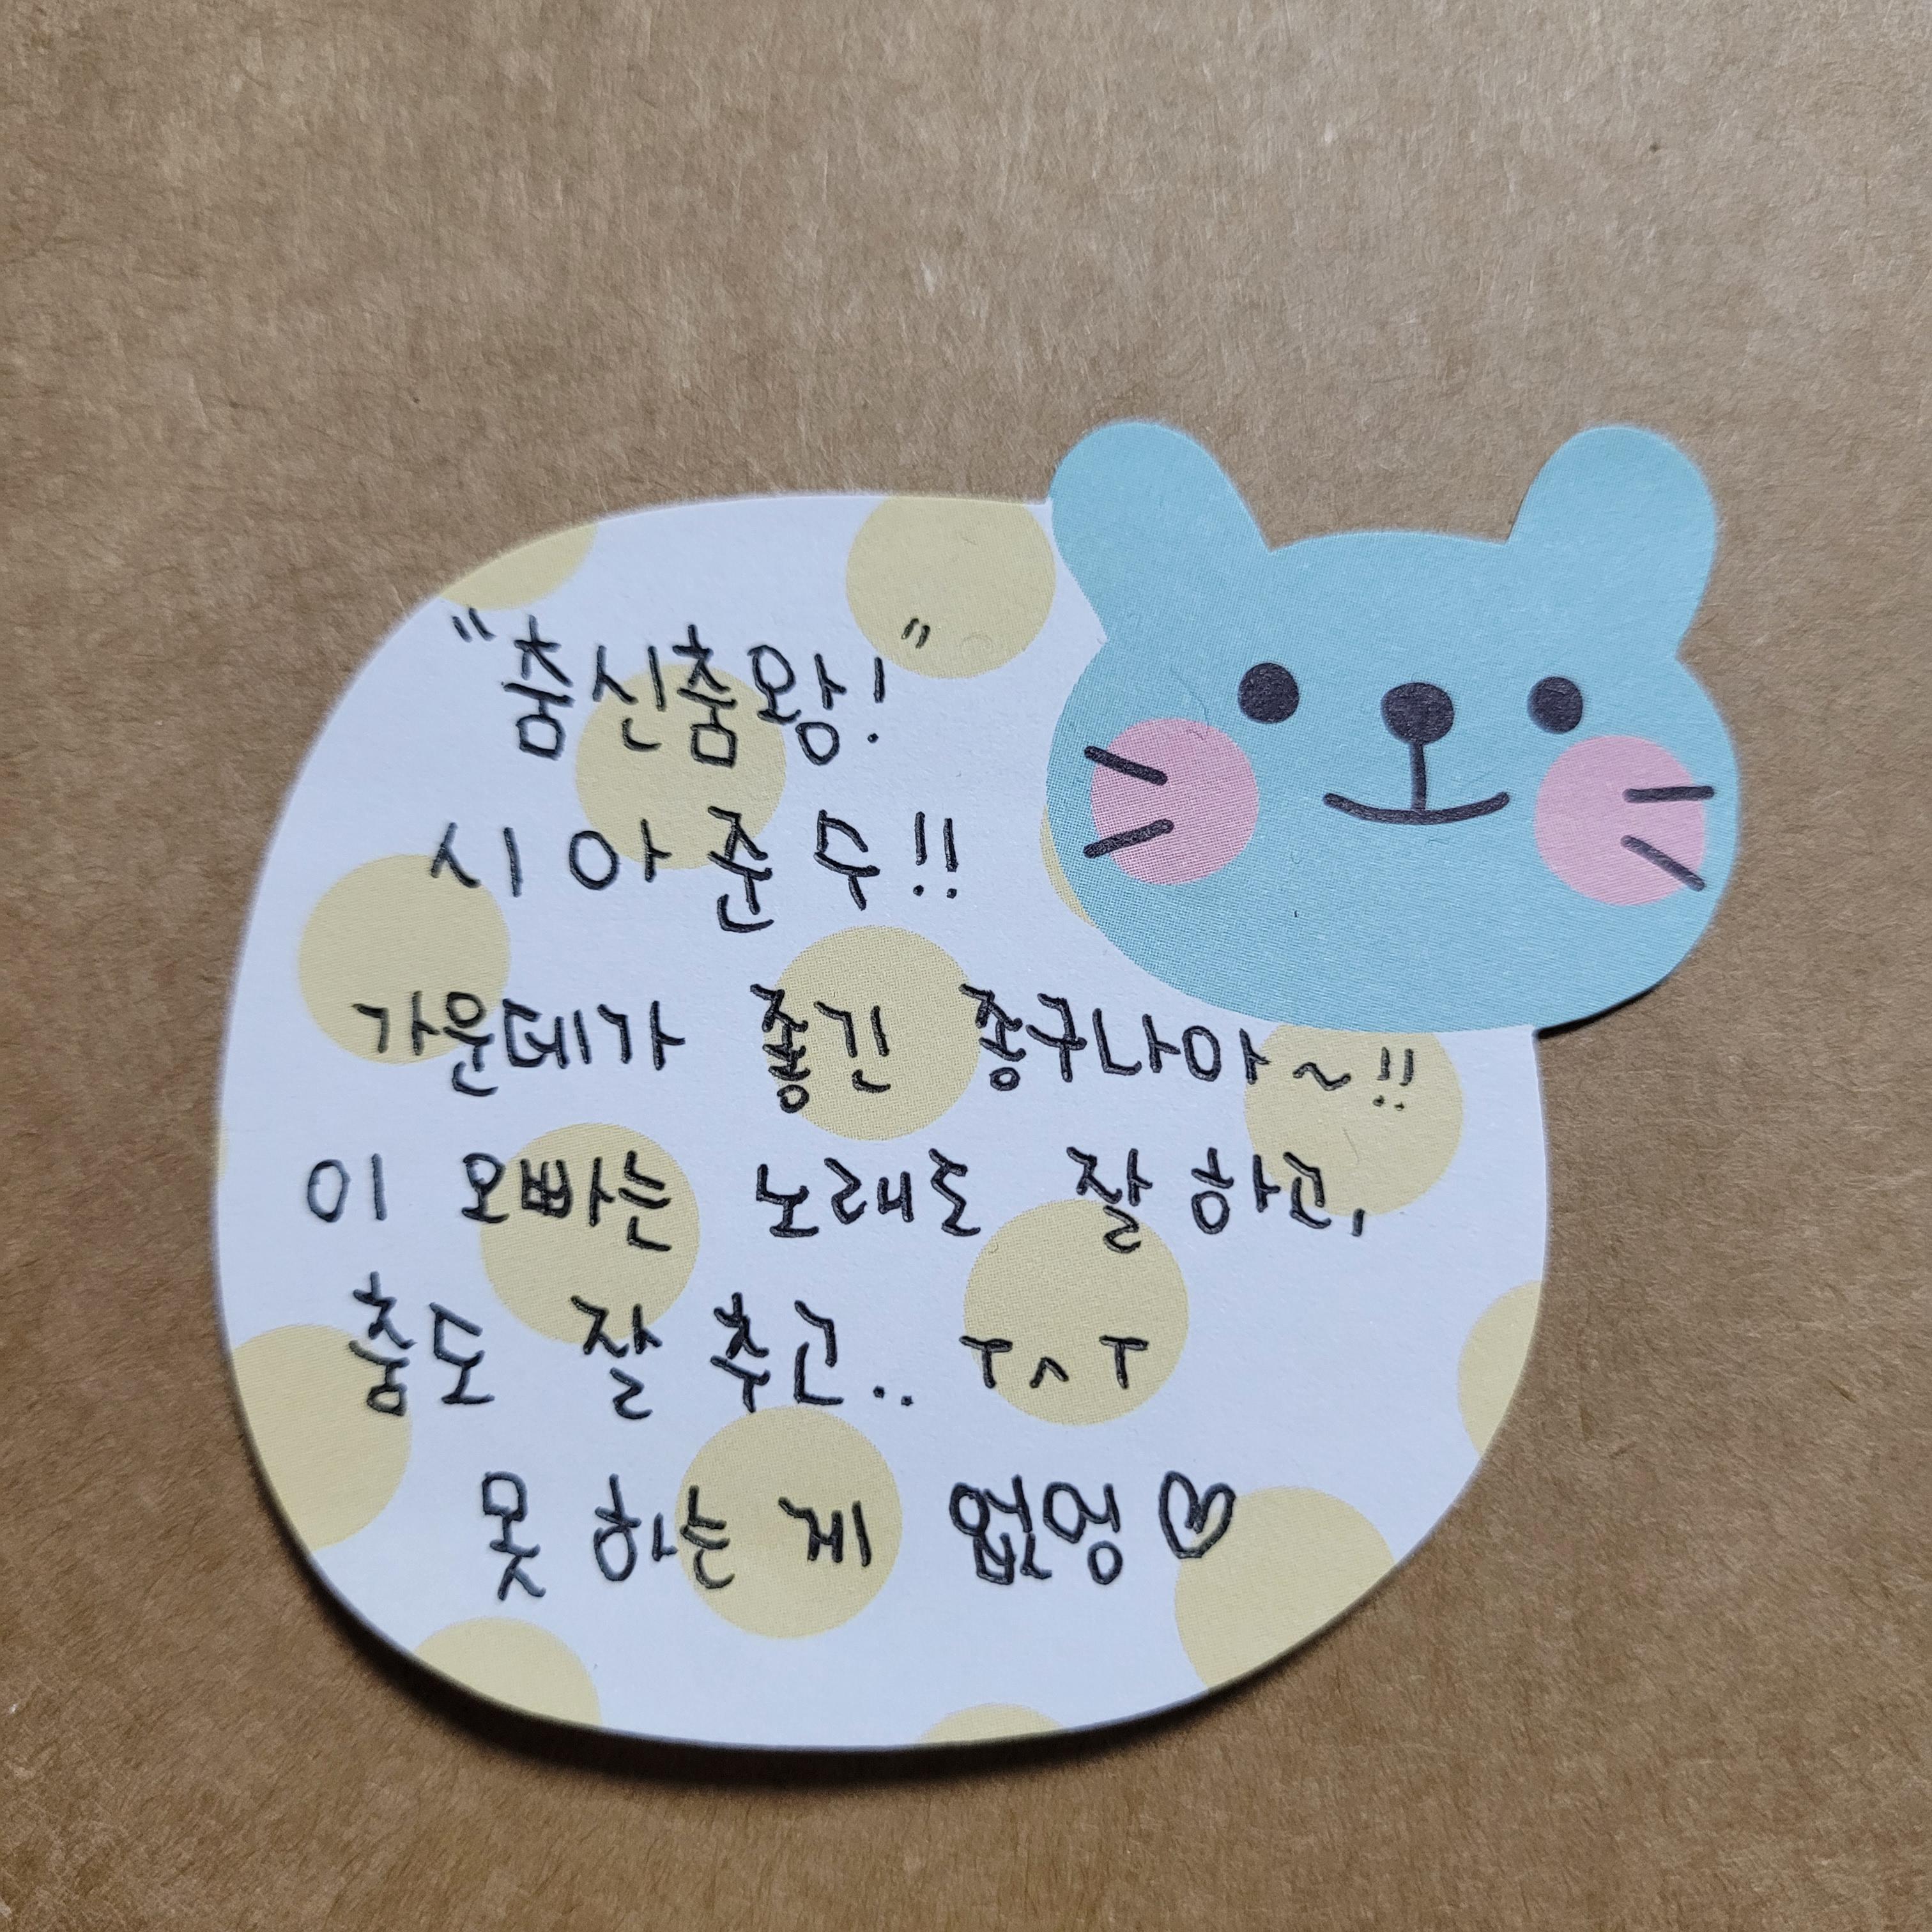 "춤신춤왕!"
시아준수!!
가운데가 좋긴 좋구나아~!!
이 오빠는 노래도 잘 하고,
춤도 잘 추고.. ㅜㅅㅜ
못 하는 게 없엉♡